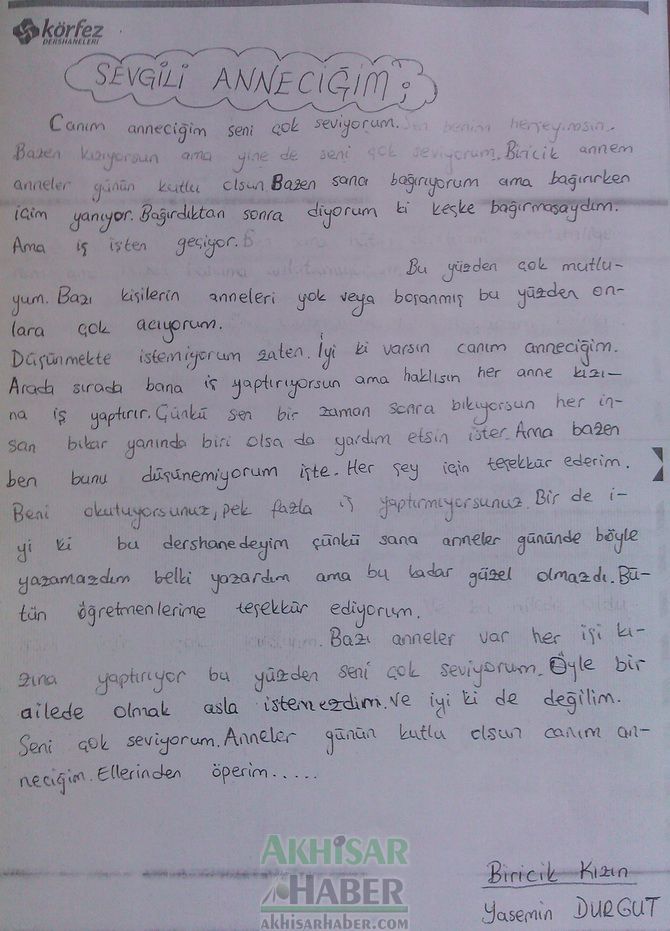 körfez
DERSHANELERİ
SEVGİLİ ANNECİĞİM;
Canım anneciğim seni çok seviyorum. Sen benim herşeyimsin.
Bazen kızıyorsun ama yine de seni çok seviyorum. Biricik annem
anneler günün kutlu olsun Bazen sana bağırıyorum ama bağırırken
içim yanıyor. Bağırdıktan sonra diyorum ki keşke bağırmasaydım.
Ama iş işten geçiyor.
Bu yüzden çok mutlu-
yum. Bazı kişilerin anneleri yok veya boşanmış bu yüzden on-
lara çok acıyorum.
Düşünmekte istemiyorum zaten. İyi ki varsın canım anneciğim.
Arada sırada bana iş yaptırıyorsun ama haklısın her anne kızı-
na iş yaptırır. Çünkü sen bir zaman sonra bıkıyorsun her in-
san bıkar yanında biri olsa da yardım etsin ister. Ama bazen
ben bunu düşünemiyorum işte. Her şey için teşekkür ederim.
Beni okutuyorsunuz, pek fazla iş yaptırmıyorsunuz. Bir de i-
yi ki bu dershanedeyim çünkü sana anneler gününde böyle
yazamazdım belki yazardım ama bu kadar güzel olmazdı. Bü-
tün öğretmenlerime teşekkür ediyorum.
Bazı anneler var her işi kı-
zına yaptırıyor bu yüzden seni çok seviyorum. Öyle bir
ailede olmak asla istemezdim. ve iyi ki de değilim.
Seni çok seviyorum. Anneler günün kutlu olsun canım an-
neciğim. Ellerinden öperim.....
Biricik Kızın
Yasemin DURGUT
AKHİSAR
HABER
AKHISARHABER.COM